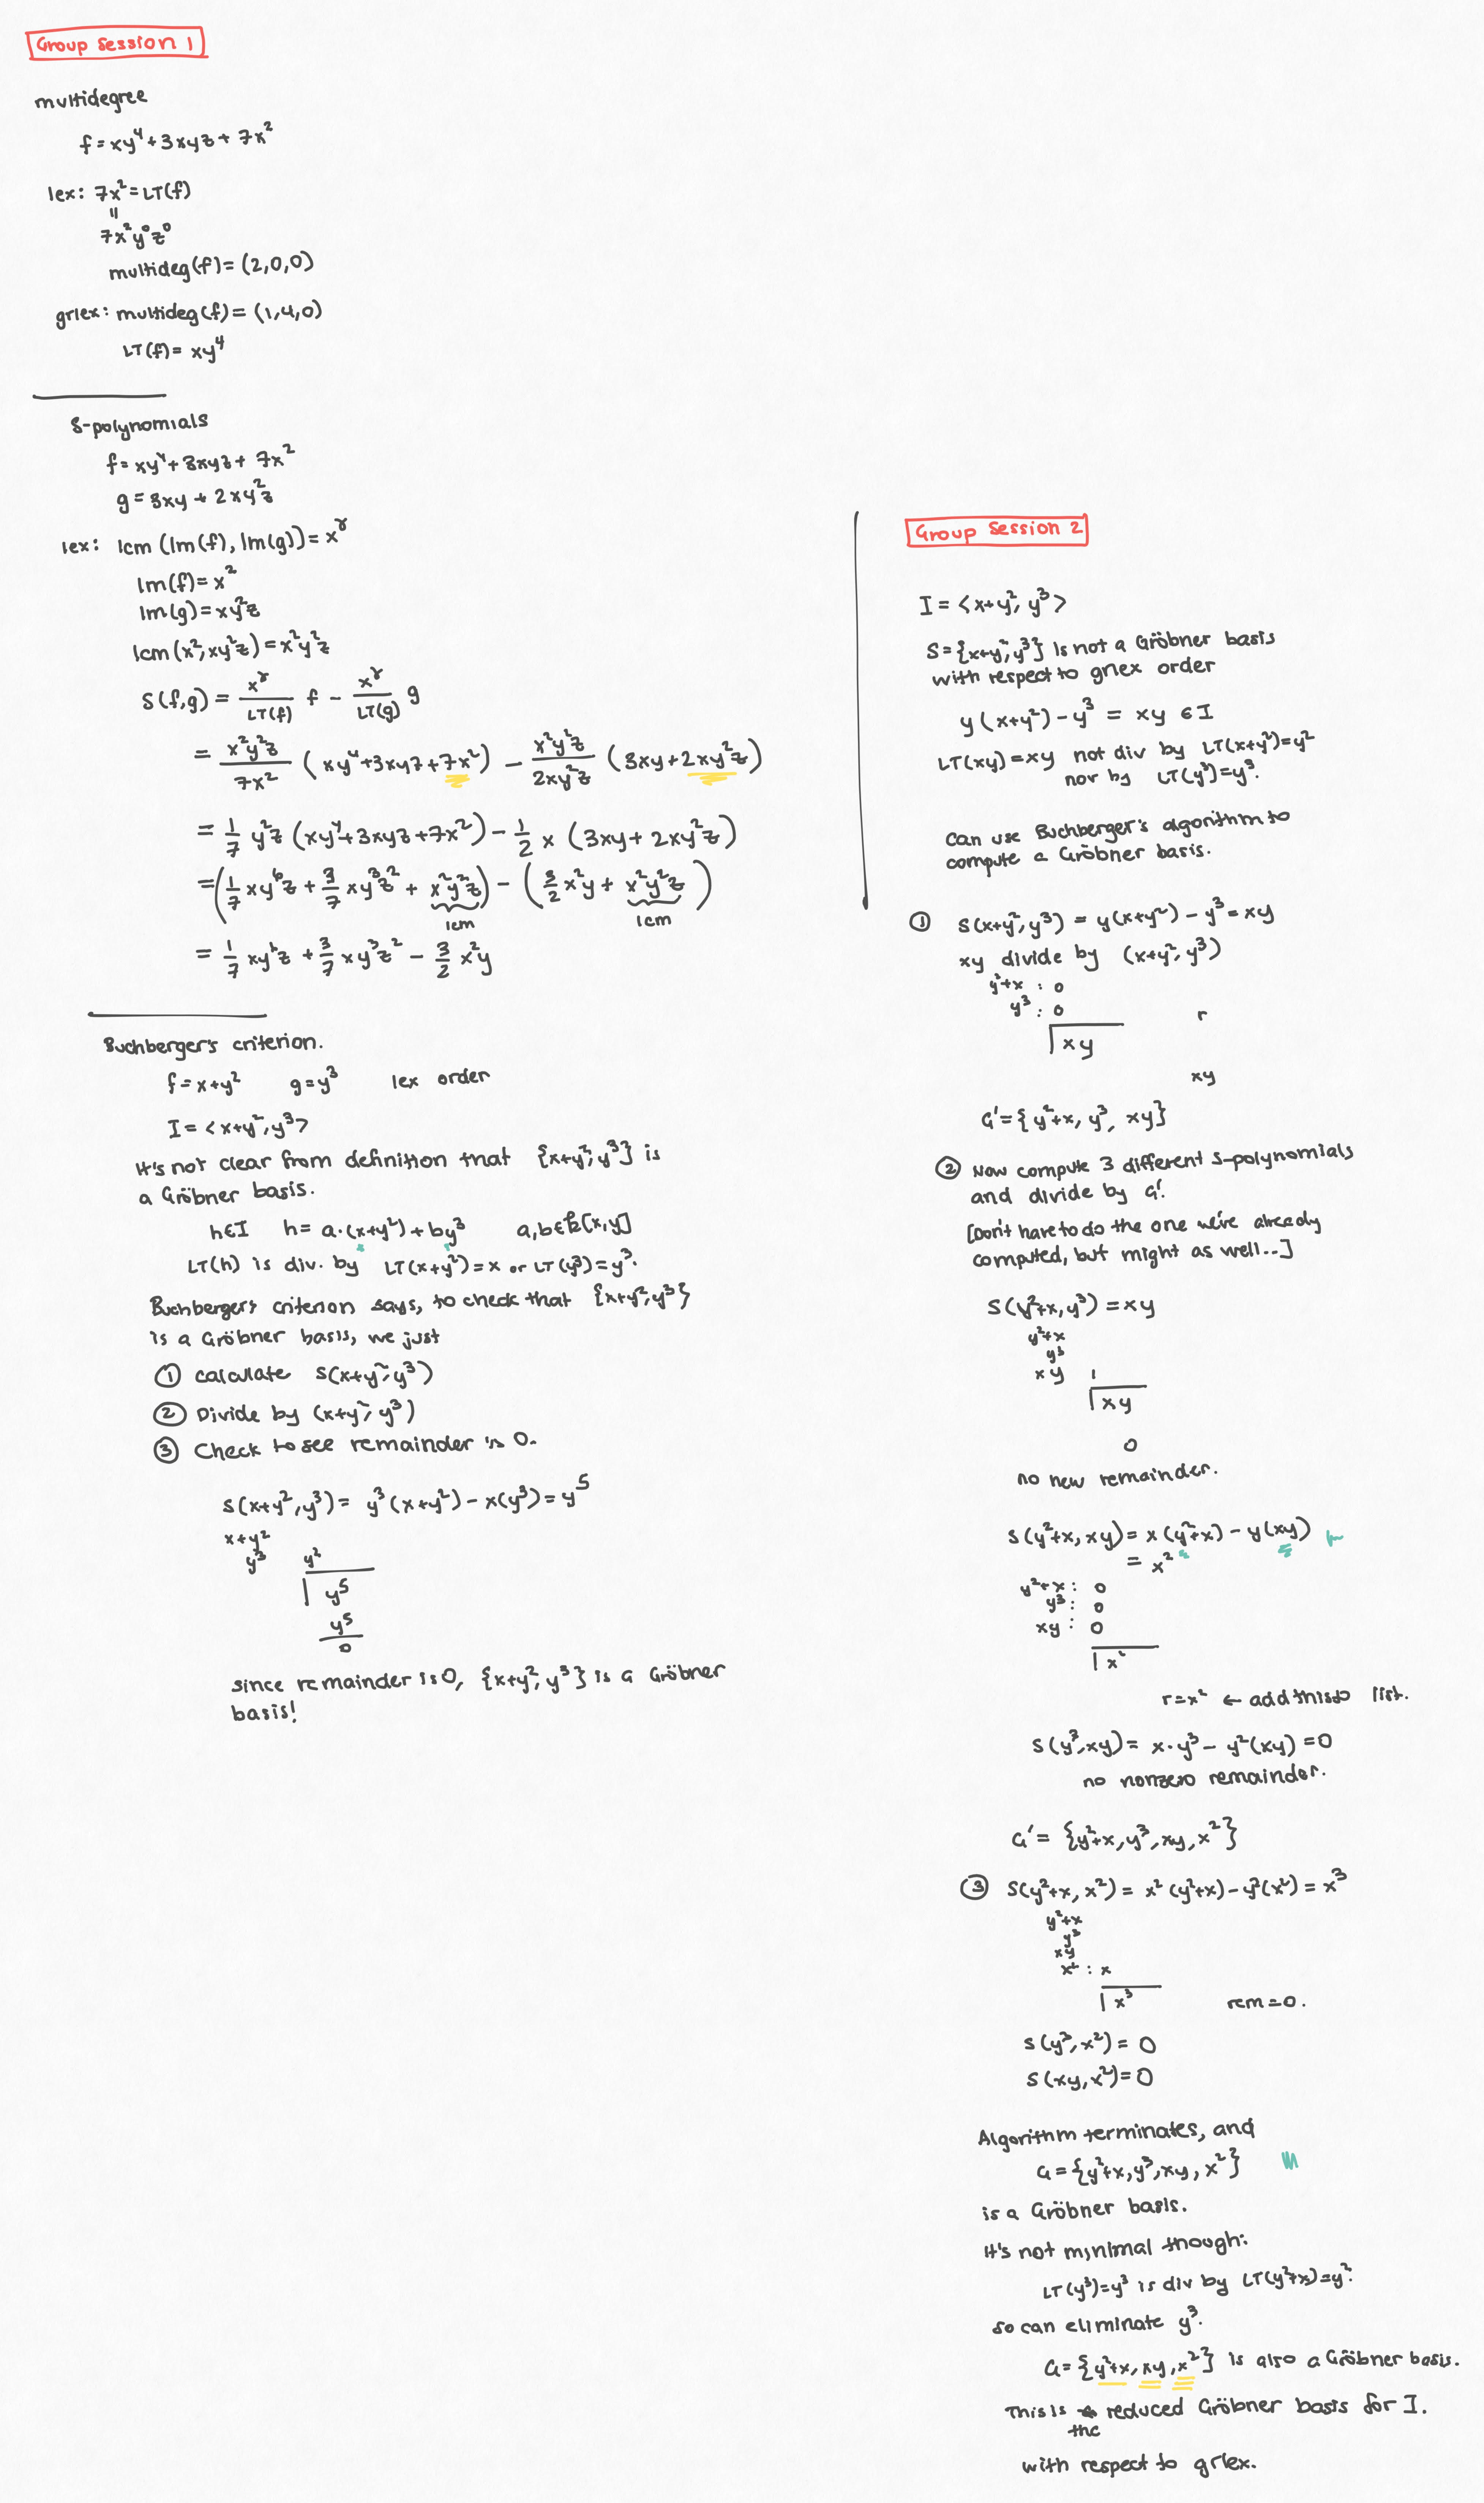 Group Session 1
multidegree
f = xy⁴ + 3xyz + 7x²
lex: 7x² = LT(f)
=
7x²y⁰z⁰
multideg(f) = (2,0,0)
grlex: multideg(f) = (1,4,0)
LT(f) = xy⁴
S-polynomials
f = xy⁴ + 3xyz + 7x²
g = 3xy + 2xy²z
lex: lcm (lm(f), lm(g)) = x^γ
lm(f) = x²
lm(g) = xy²z
lcm(x², xy²z) = x²y²z
S(f,g) = x^γ/LT(f) f - x^γ/LT(g) g
= x²y²z/7x² (xy⁴ + 3xyz + 7x²) - x²y²z/2xy²z (3xy + 2xy²z)
= 1/7 y²z (xy⁴ + 3xyz + 7x²) - 1/2 x (3xy + 2xy²z)
= (1/7 xy⁶z + 3/7 xy³z² + x²y²z) - (3/2 x²y + x²y²z)
lcm lcm
= 1/7 xy⁶z + 3/7 xy³z² - 3/2 x²y
Buchberger's criterion.
f = x+y² g = y³ lex order
I = <x+y², y³>
It's not clear from definition that {x+y², y³} is
a Gröbner basis.
h∈I h = a·(x+y²) + by³ a,b∈k[x,y]
LT(h) is div. by LT(x+y²) = x or LT(y³) = y³.
Buchberger's criterion says, to check that {x+y², y³}
is a Gröbner basis, we just
① calculate S(x+y², y³)
② Divide by (x+y², y³)
③ Check to see remainder is 0.
S(x+y², y³) = y³(x+y²) - x(y³) = y⁵
x+y²
y³ y²
y⁵
y⁵
0
since remainder is 0, {x+y², y³} is a Gröbner
basis!
Group Session 2
I = <x+y², y³>
S = {x+y², y³} is not a Gröbner basis
with respect to grlex order
y(x+y²) - y³ = xy ∈ I
LT(xy) = xy not div by LT(x+y²) = y²
nor by LT(y³) = y³.
Can use Buchberger's algorithm to
compute a Gröbner basis.
① S(x+y², y³) = y(x+y²) - y³ = xy
xy divide by (x+y², y³)
y²+x : 0
y³ : 0 r
xy
xy
G' = {y²+x, y³, xy}
② Now compute 3 different S-polynomials
and divide by G'.
[Don't have to do the one we've already
computed, but might as well...]
S(y²+x, y³) = xy
y²+x
y³
xy 1
xy
0
no new remainder.
S(y²+x, xy) = x(y²+x) - y(xy)
= x²
y²+x : 0
y³ : 0
xy : 0
x²
r = x² ← add this to list.
S(y³, xy) = x·y³ - y²(xy) = 0
no nonzero remainder.
G' = {y²+x, y³, xy, x²}
③ S(y²+x, x²) = x²(y²+x) - y²(x²) = x³
y²+x
y³
xy
x² : x
x³ rem = 0.
S(y³, x²) = 0
S(xy, x²) = 0
Algorithm terminates, and
G = {y²+x, y³, xy, x²}
is a Gröbner basis.
It's not minimal though:
LT(y³) = y³ is div by LT(y²+x) = y².
so can eliminate y³.
G = {y²+x, xy, x²} is also a Gröbner basis.
This is the reduced Gröbner basis for I.
with respect to grlex.